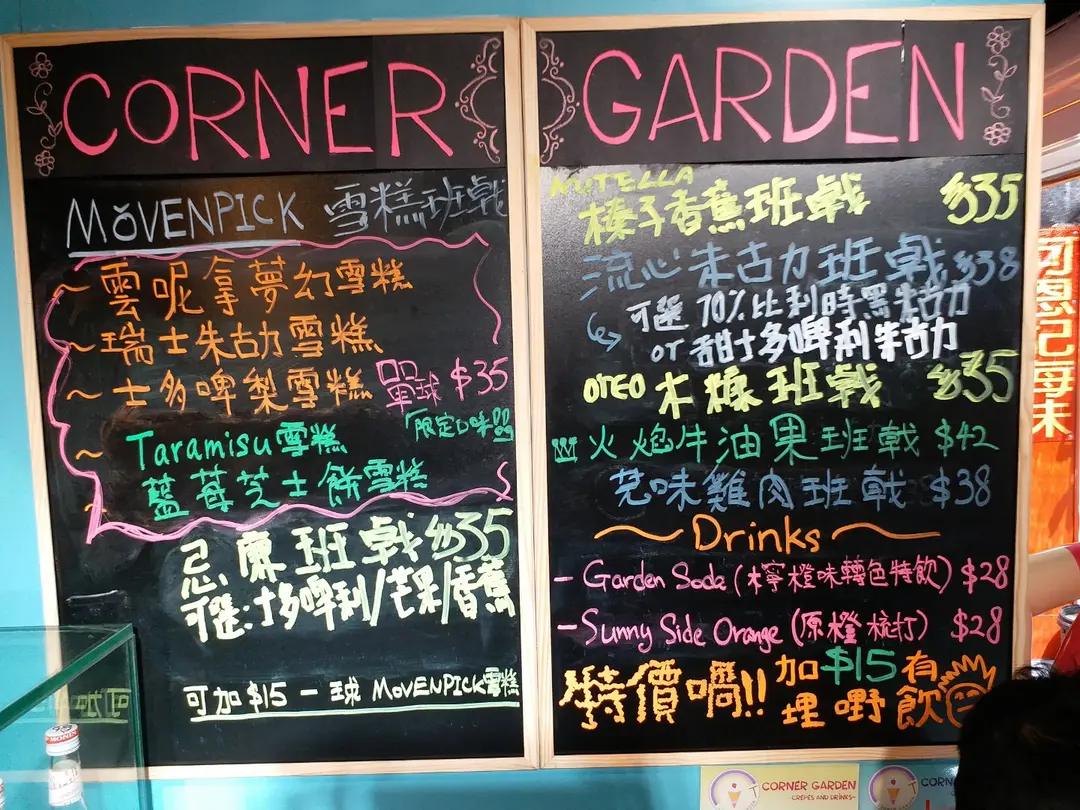 CORNER
MÖVENPICK 雪糕班戟
~ 雲呢拿夢幻雪糕
~ 瑞士朱古力雪糕
~ 士多啤梨雪糕 單球 $35
「限定口味」!!
~ Taramisu雪糕
藍莓芝士餅雪糕
忌廉班戟 $35
可選：士多啤利/芒果/香蕉
可加 $15 一球 MOVENPICK雪糕
GARDEN
NUTELLA
榛子香蕉班戟 $35
流心朱古力班戟 $38
可選 70% 比利時黑朱古力
or 甜士多啤利朱古力
OREO 木糠班戟 $35
火炮牛油果班戟 $42
芝味雞肉班戟 $38
~ Drinks ~
- Garden Soda (檸橙味轉色特飲) $28
- Sunny Side Orange (原橙梳打) $28
特價喎!!
加 $15 有
埋嘢飲
可
恩
記
每
未
MONIN
CORNER GARDEN
CREPES AND DRINKS~
CORN